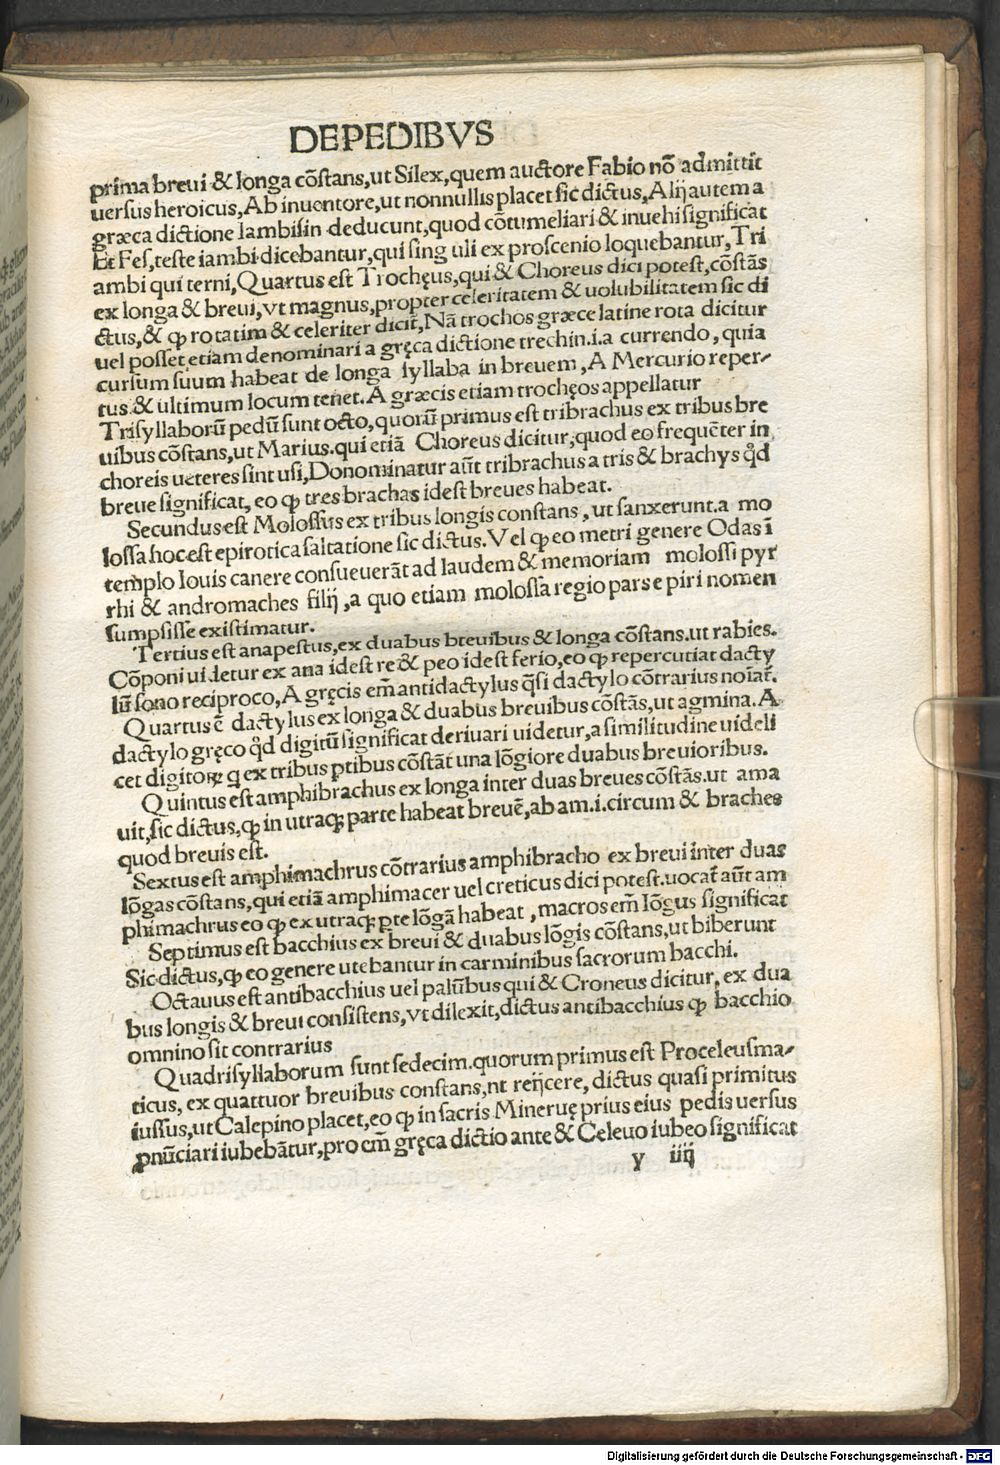 DEPEDIBVS
prima breui & longa cōstans,ut Silex,quem auctore Fabio nō admittit
uersus heroicus,Ab inuentore,ut nonnullis placet sic dictus,Alij autem a
græca dictione Iambisin deducunt,quod cōtumeliari & inuehi significat
Et Fes,teste iambi dicebantur,qui sing uli ex proscenio loquebantur,Tri
ambi qui terni,Quartus est Trochęus,qui & Choreus dici potest,cōstās
ex longa & breui,vt magnus,propter celeritatem & uolubilitatem sic di
ctus,& ꝙ rotatim & celeriter dicit̄,Nā trochos græce latine rota dicitur
uel posset etiam denominari a gręca dictione trechin.i.a currendo,quia
cursum suum habeat de longa syllaba in breuem,A Mercurio reper-
tus & ultimum locum tenet.A græcis etiam trochęos appellatur
Trisyllaborū pedū sunt octo,quorū primus est tribrachus ex tribus bre
uibus cōstans,ut Marius.qui etiā Choreus dicitur,quod eo frequēter in
choreis ueteres sint usi,Donominatur aūt tribrachus a tris & brachys qd̄
breue significat,eo ꝙ tres brachas idest breues habeat.
Secundus est Molossus ex tribus longis constans,ut sanxerunt.a mo
lossa hoc est epirotica saltatione sic dictus.Vel ꝙ eo metri genere Odas ī
templo Iouis canere consueuerāt ad laudem & memoriam molossi pyr
rhi & andromaches filij,a quo etiam molossa regio pars e piri nomen
sumpsisse existimatur.
Tertius est anapestus,ex duabus breuibus & longa cōstans.ut rabies.
Cōponi uidetur ex ana idest re & peo idest ferio,eo ꝙ repercutiat dacty
lū sono reciproco,A gręcis em̄ antidactylus q̄si dactylo cōtrarius noīat̄.
Quartus ē dactylus ex longa & duabus breuibus cōstās,ut agmina.A
dactylo gręco qd̄ digitū significat deriuari uidetur,a similitudine uideli
cet digitoꝝ q ex tribus ptibus cōstāt una lōgiore duabus breuioribus.
Quintus est amphibrachus ex longa inter duas breues cōstās.ut ama
uit,sic dictus,ꝙ in utraqꝫ parte habeat breuē,ab am.i.circum & braches
quod breuis est.
Sextus est amphimachrus cōtrarius amphibracho ex breui inter duas
lōgas cōstans,qui etiā amphimacer uel creticus dici potest.uocat̄ aūt am
phimachrus eo ꝙ ex utraqꝫ pte lōgā habeat,macros em̄ lōgus significat
Septimus est bacchius ex breui & duabus lōgis cōstans,ut biberunt
Sic dictus,ꝙ eo genere utebantur in carminibus sacrorum bacchi.
Octauus est antibacchius uel palūbus qui & Croneus dicitur,ex dua
bus longis & breui consistens,vt dilexit,dictus antibacchius ꝙ bacchio
omnino sit contrarius
Quadrisyllaborum sunt sedecim.quorum primus est Proceleusma-
ticus,ex quattuor breuibus constans,nt reijcere,dictus quasi primitus
iussus,ut Calepino placet,eo ꝙ in sacris Mineruę prius eius pedis uersus
ꝓnūciari iubebātur,pro em̄ gręca dictio ante & Celeuo iubeo significat
y iiij
Digitalisierung gefördert durch die Deutsche Forschungsgemeinschaft - DFG